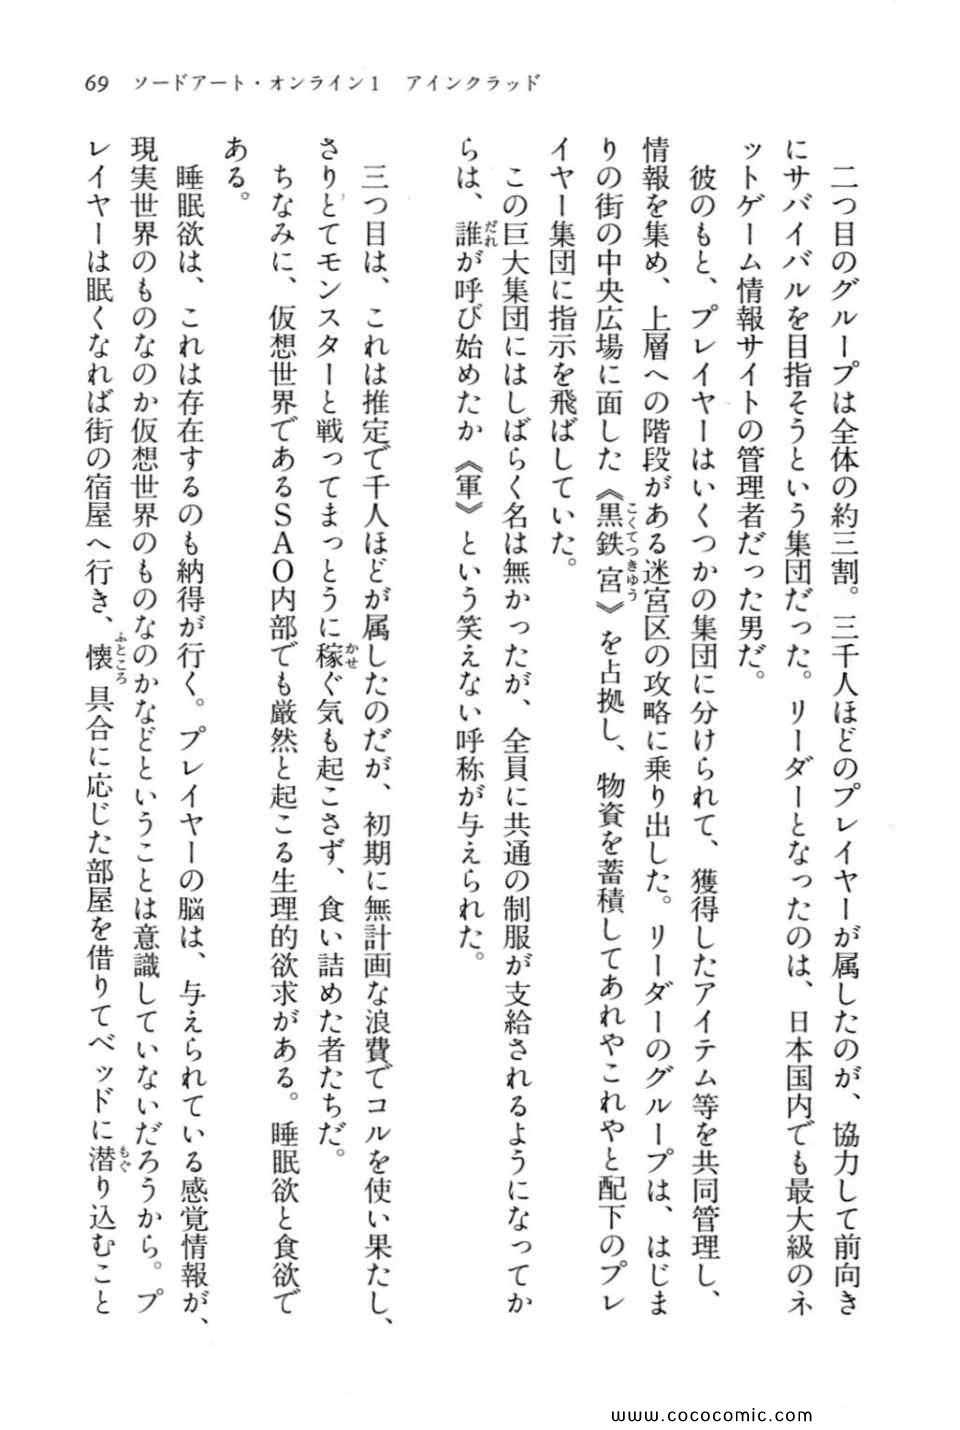 69 ソードアート・オンライン1 アインクラッド
二つ目のグループは全体の約三割。三千人ほどのプレイヤーが属したのが、協力して前向き
にサバイバルを目指そうという集団だった。リーダーとなったのは、日本国内でも最大級のネ
ットゲーム情報サイトの管理者だった男だ。
彼のもと、プレイヤーはいくつかの集団に分けられて、獲得したアイテム等を共同管理し、
情報を集め、上層への階段がある迷宮区の攻略に乗り出した。リーダーのグループは、はじま
りの街の中央広場に面した《黒鉄宮》を占拠し、物資を蓄積してあれやこれやと配下のプレ
イヤー集団に指示を飛ばしていた。
この巨大集団にはしばらく名は無かったが、全員に共通の制服が支給されるようになってか
らは、誰が呼び始めたか《軍》という笑えない呼称が与えられた。
三つ目は、これは推定で千人ほどが属したのだが、初期に無計画な浪費でコルを使い果たし、
さりとてモンスターと戦ってまっとうに稼ぐ気も起こさず、食い詰めた者たちだ。
ちなみに、仮想世界であるSAO内部でも厳然と起こる生理的欲求がある。睡眠欲と食欲で
ある。
睡眠欲は、これは存在するのも納得が行く。プレイヤーの脳は、与えられている感覚情報が、
現実世界のものなのか仮想世界のものなのかなどということは意識していないだろうから。プ
レイヤーは眠くなれば街の宿屋へ行き、懐具合に応じた部屋を借りてベッドに潜り込むこと
www.cococomic.com